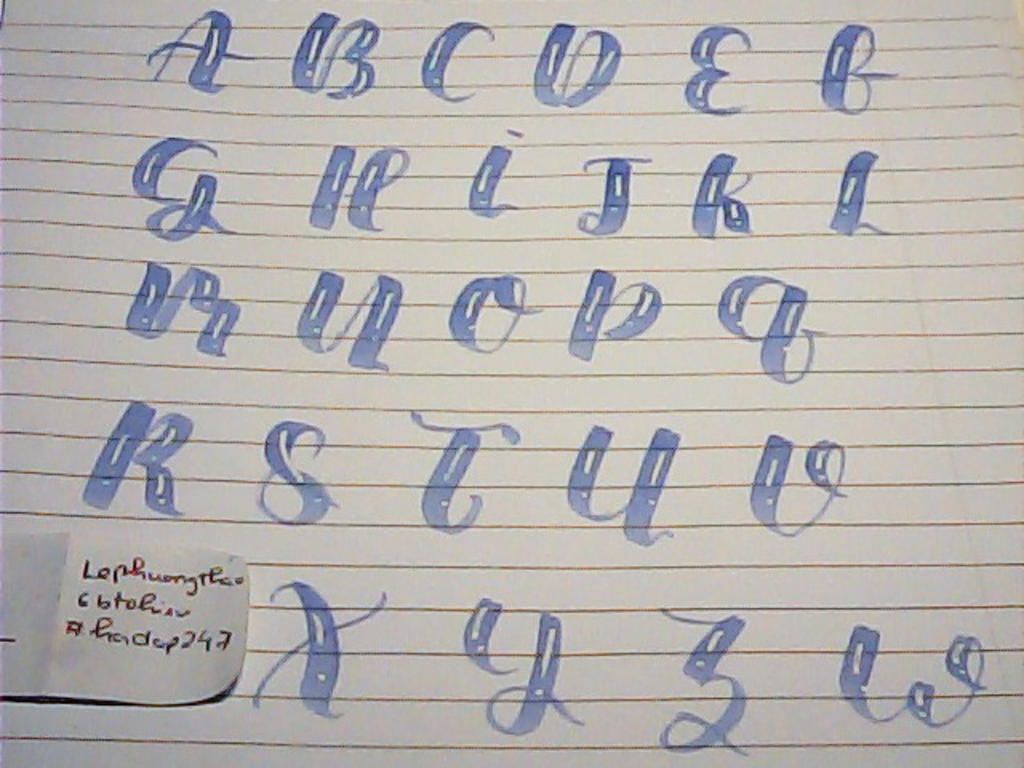 A B C D E F
G H i J K L
M N O P Q
R S T U V
Lephuongthao
6btohieu
#hadap247
X Y Z W